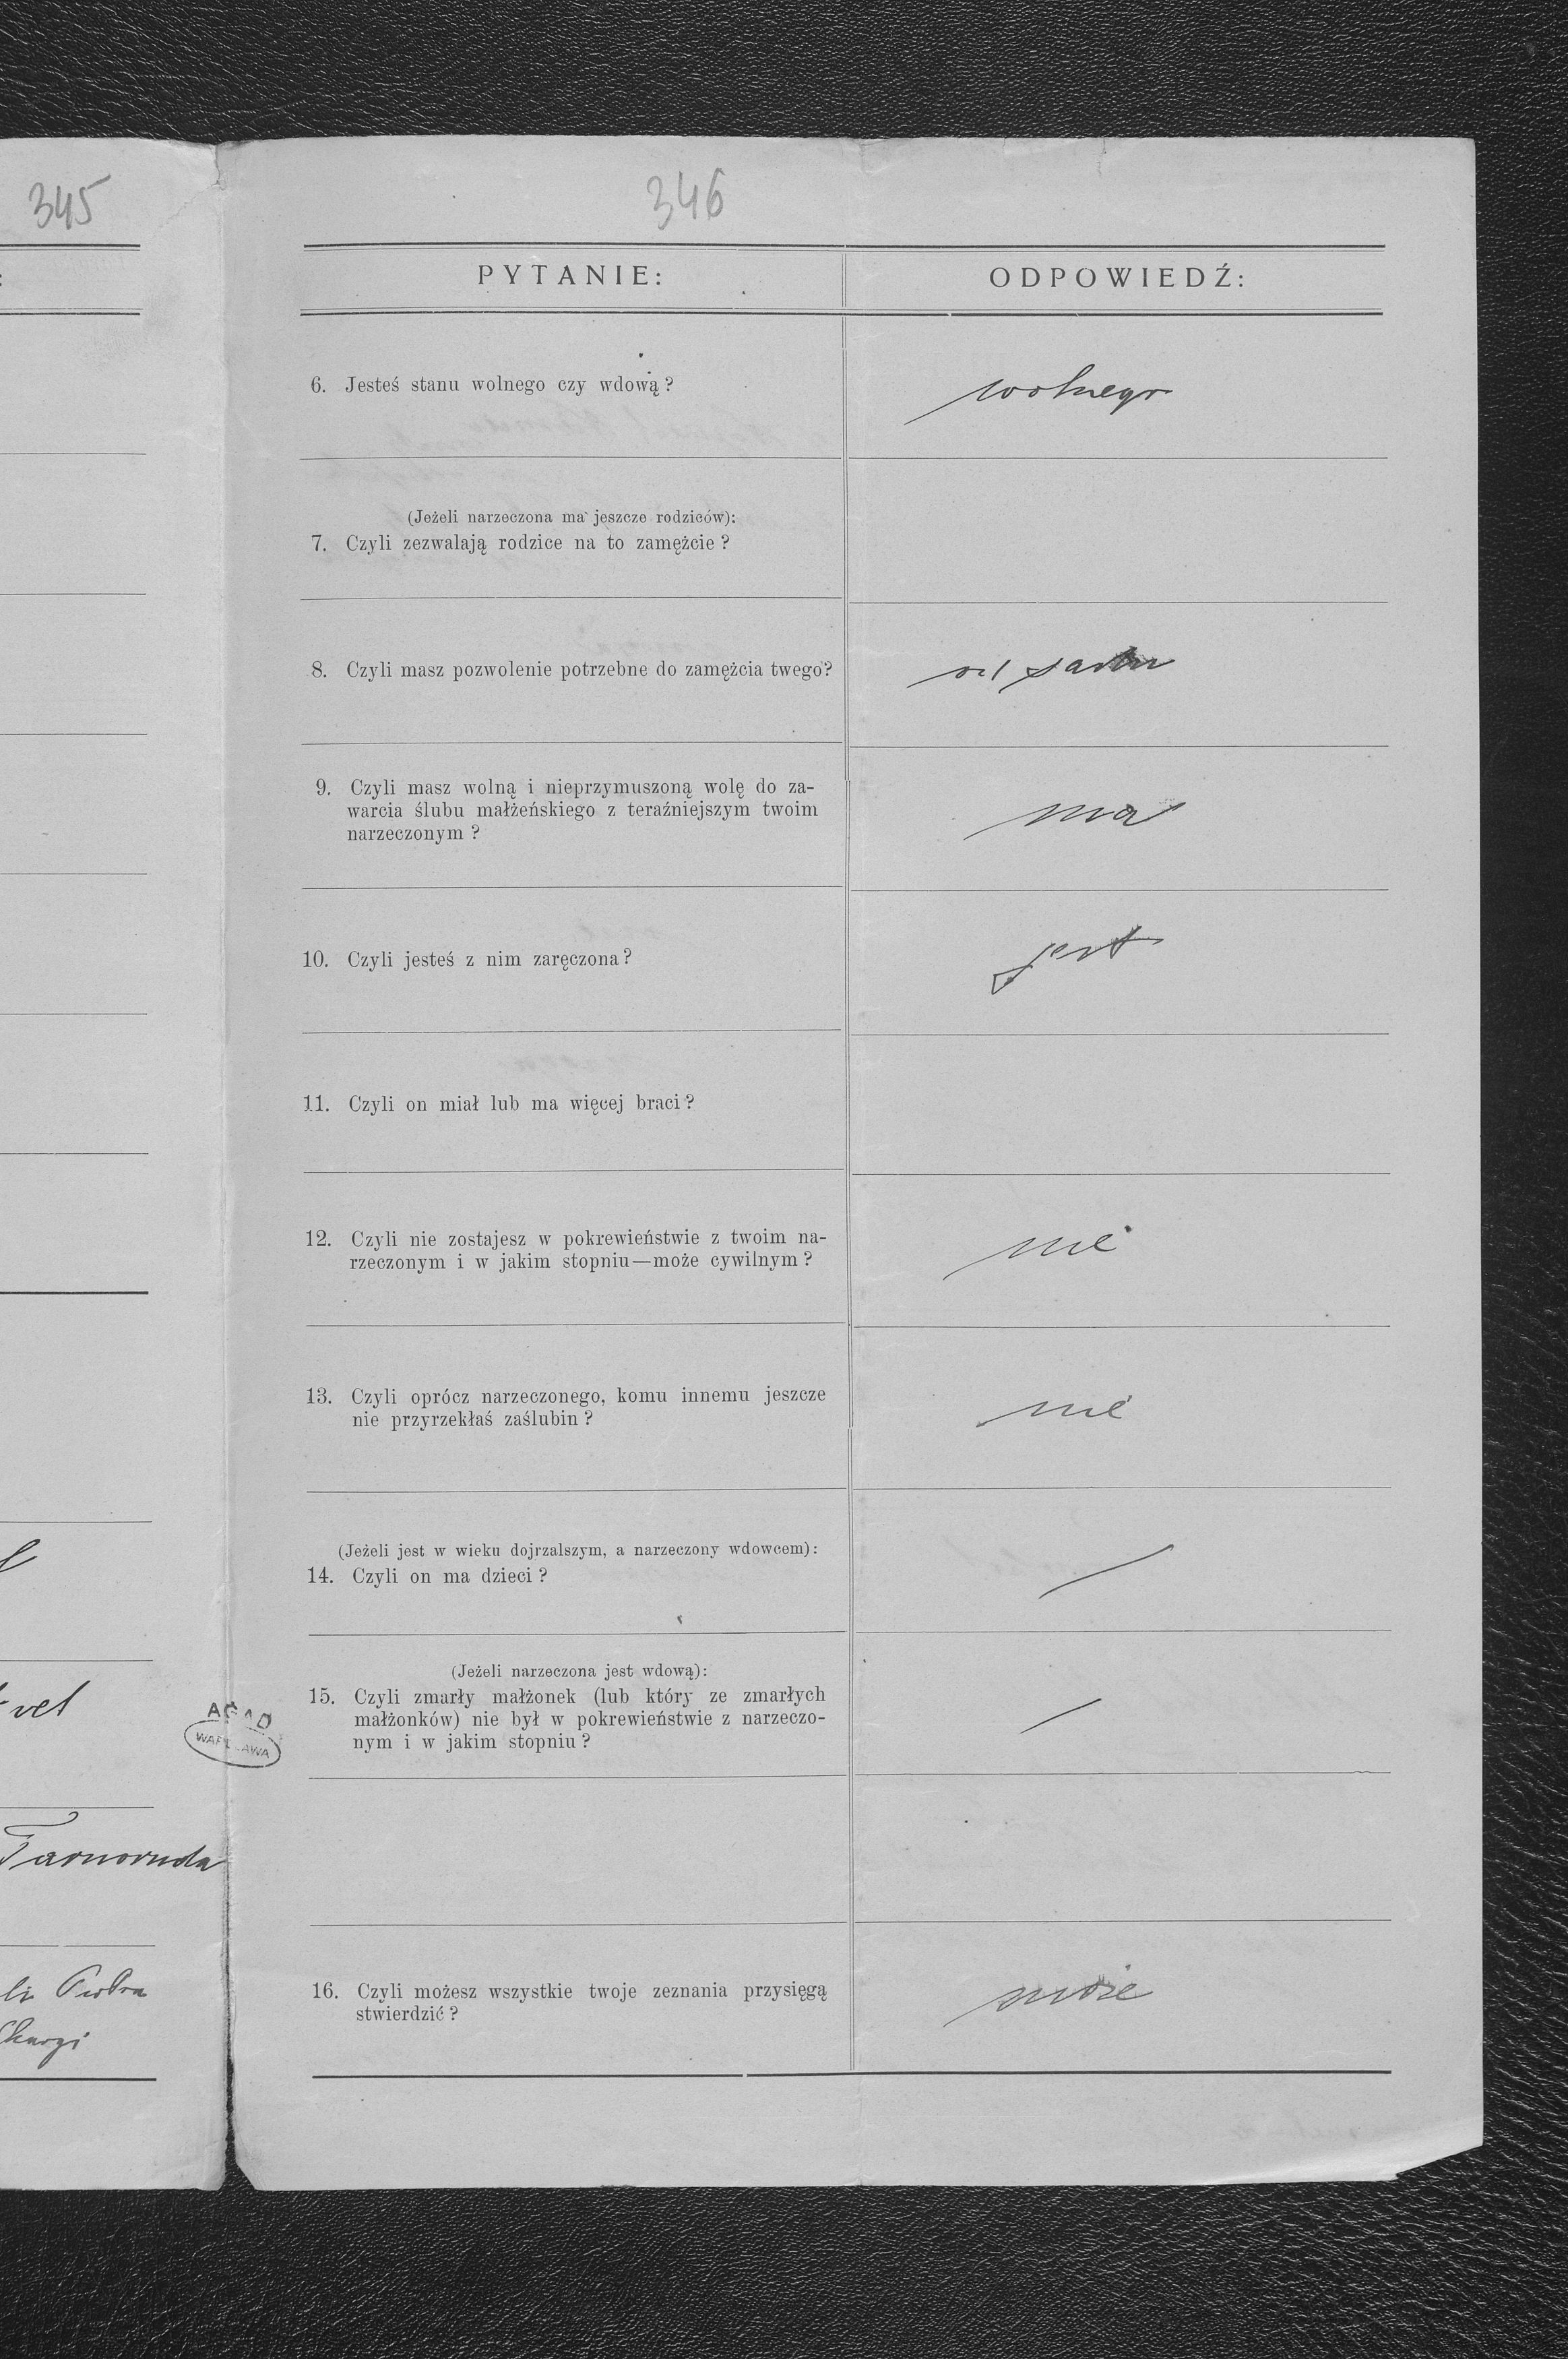 345
346
:
PYTANIE:
ODPOWIEDŹ:
6. Jesteś stanu wolnego czy wdową?
wolnego
(Jeżeli narzeczona ma jeszcze rodziców):
7. Czyli zezwalają rodzice na to zamężcie?
8. Czyli masz pozwolenie potrzebne do zamężcia twego?
od sądu
9. Czyli masz wolną i nieprzymuszoną wolę do za-
warcia ślubu małżeńskiego z teraźniejszym twoim
narzeczonym?
ma
10. Czyli jesteś z nim zaręczona?
jest
11. Czyli on miał lub ma więcej braci?
12. Czyli nie zostajesz w pokrewieństwie z twoim na-
rzeczonym i w jakim stopniu—może cywilnym?
nie
13. Czyli oprócz narzeczonego, komu innemu jeszcze
nie przyrzekłaś zaślubin?
nie
(Jeżeli jest w wieku dojrzalszym, a narzeczony wdowcem):
14. Czyli on ma dzieci?
(Jeżeli narzeczona jest wdową):
15. Czyli zmarły małżonek (lub który ze zmarłych
małżonków) nie był w pokrewieństwie z narzeczo-
nym i w jakim stopniu?
vel
AGAD
WARSZAWA
Tarnoruda
Piotra
16. Czyli możesz wszystkie twoje zeznania przysięgą
stwierdzić?
może